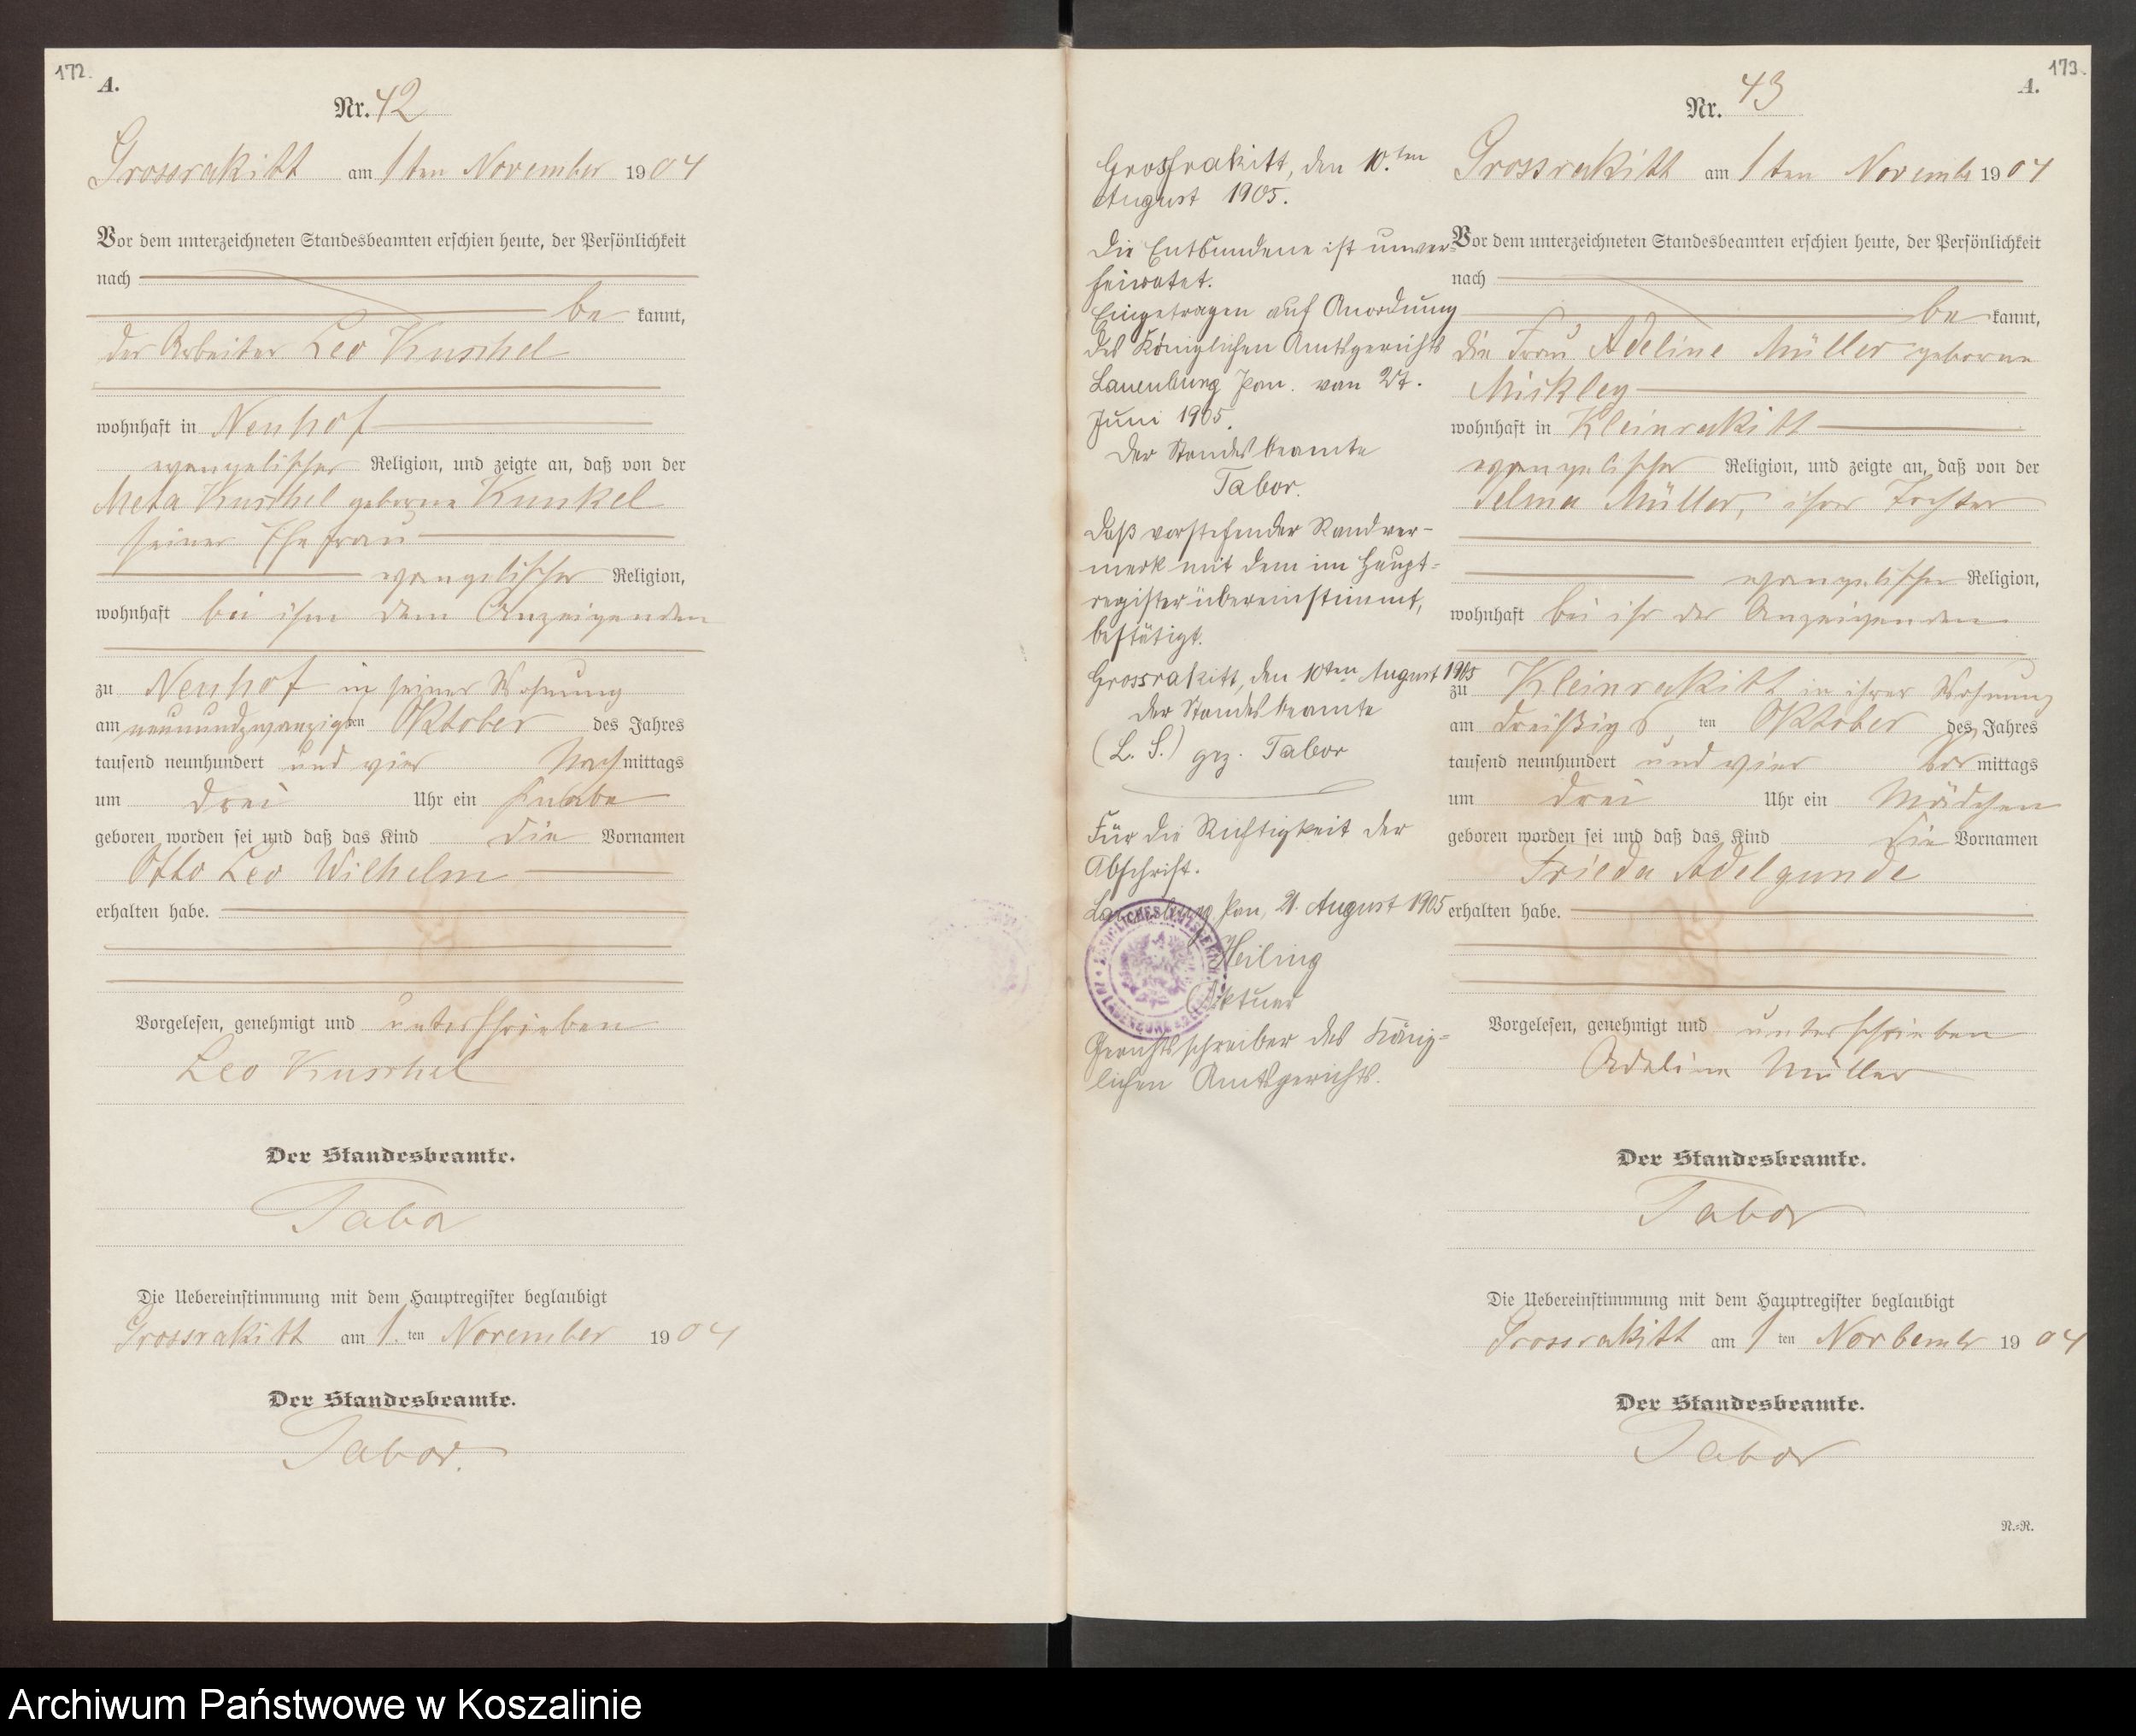 172.
A.
Nr. 42
Grossrakitt am 1ten November 1904
Vor dem unterzeichneten Standesbeamten erschien heute, der Persönlichkeit
nach
be kannt,
der Arbeiter Leo Kuschel
wohnhaft in Neuhof
evangelischer Religion, und zeigte an, daß von der
Meta Kuschel geborne Kunkel
seiner Ehefrau
evangelischer Religion,
wohnhaft bei ihm dem Anzeigenden
zu Neuhof in seiner Wohnung
am neunundzwanzigsten Oktober des Jahres
tausend neunhundert und vier Nachmittags
um drei Uhr ein Knabe
geboren worden sei und daß das Kind die Vornamen
Otto Leo Wilhelm
erhalten habe.
Vorgelesen, genehmigt und unterschrieben
Leo Kuschel
Der Standesbeamte.
Tabor
Die Uebereinstimmung mit dem Hauptregister beglaubigt
Grossrakitt am 1. ten November 1904
Der Standesbeamte.
Tabor.
173.
A.
Nr. 43
Grossrakitt, den 10.ten
August 1905.
Die Entbundene ist unver-
heiratet.
Eingetragen auf Anordnung
des Königlichen Amtsgerichts
Lauenburg Pom. vom 27.
Juni 1905.
Der Standesbeamte
Tabor.
Daß vorstehender Randver-
merk mit dem im Haupt-
register übereinstimmt,
bestätigt.
Grossrakitt, den 10ten August 1905
Der Standesbeamte
(L. S.) gez. Tabor
Für die Richtigkeit der
Abschrift.
Lauenburg Pom, 21. August 1905
Heiling
Aktuar
Gerichtsschreiber des König-
lichen Amtsgerichts.
Grossrakitt am 1 ten Novembr 1904
Vor dem unterzeichneten Standesbeamten erschien heute, der Persönlichkeit
nach
be kannt,
die Frau Adeline Müller geborne
Mickley
wohnhaft in Kleinrakitt
evangelischer Religion, und zeigte an, daß von der
Selma Müller, ihrer Tochter
evangelischer Religion,
wohnhaft bei ihr der Anzeigenden
zu Kleinrakitt in ihrer Wohnung
am dreißigs ten Oktober des Jahres
tausend neunhundert und vier Vor mittags
um drei Uhr ein Mädchen
geboren worden sei und daß das Kind die Vornamen
Frieda Adelgunde
erhalten habe.
Vorgelesen, genehmigt und unterschrieben
Adeline Müller
Der Standesbeamte.
Tabor
Die Uebereinstimmung mit dem Hauptregister beglaubigt
Grossrakitt am 1 ten Novbembr 1904
Der Standesbeamte.
Tabor
R.=R.
Archiwum Państwowe w Koszalinie